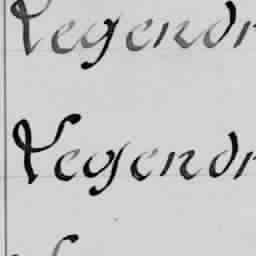 Legendr
Legendr